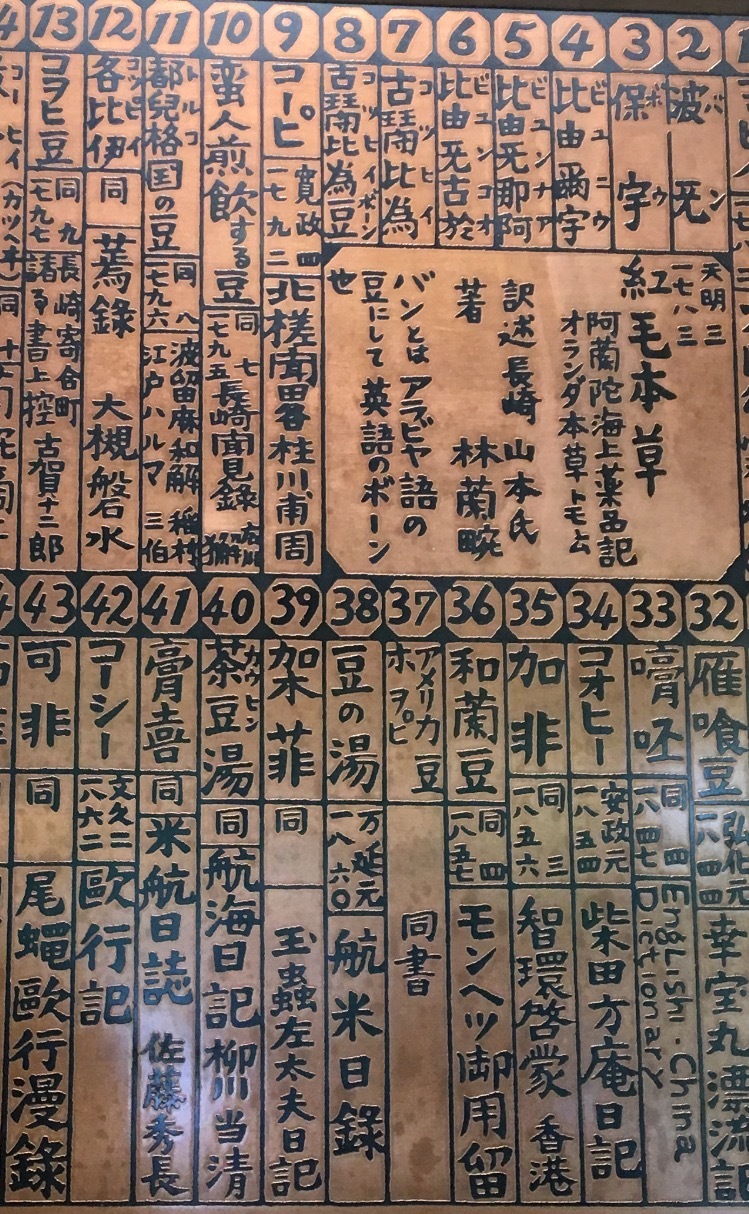 2
波旡
バン
3
保宇
ボウ
4
比由爾宇
ビユニウ
5
比由旡那阿
ビユンナア
6
比由旡古於
ビユンコオ
7
古闘比為
コツヒイ
8
古闘比為豆
コツヒイボーン
天明三
一七八三
紅毛本草
阿蘭陀海上薬品記
オランダ本草トモ云
訳述 長崎 山本氏
著 林蘭畹
バンとはアラビヤ語の
豆にして英語のボーン
也
9
コーヒ
寛政四
一七九二
北槎聞畧 桂川甫周
10
蛮人煎飲する豆
同七
一七九五
長崎聞見錄
11
都兒格国の豆
トルコ
同八
一七九六
波留麻和解 稲村
江戸ハルマ 三伯
12
各比伊
コッピイ
同
蔫錄 大槻磐水
13
コヲヒ豆
同九
一七九七
長崎寄合町
諸事書上控 古賀十二郎
32
雁喰豆
弘化元
一八四四
幸宝丸漂流記
33
嗬呸
同四
一八四七
English-China
Dictionary
34
コオヒー
安政元
一八五四
柴田方庵日記
35
加非
同三
一八五六
智環啓蒙 香港
36
和蘭豆
同四
一八五七
モンヘツ御用留
37
アメリカ豆
ホヲピ
同書
38
豆の湯
万延元
一八六〇
航米日錄
39
架菲
同
玉蟲左太夫日記
40
茶豆湯
カウヒン
同
航海日記 柳川当清
41
膏喜
同
米航日誌 佐藤秀長
42
コーシー
文久二
一八六二
歐行記
43
可非
同
尾蠅歐行漫錄